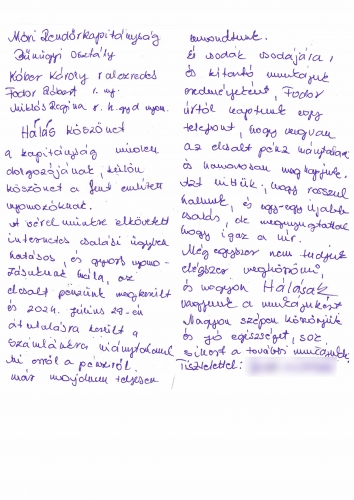 Móri Rendőrkapitányság
Bűnügyi Osztály
Kóber Károly r. alezredes
Fodor Róbert r. nyj.
Miklós Regina r. h. gyd nyom.
Hálás köszönet
a kapitányság minden
dolgozójának, külön
köszönet a fent említett
nyomozóknak.
A vérel minket elkövetett
internetes csalási ügyben
hatásos, és gyors nyomo-
zásuknak hála, az
elcsalt pénzünk megkerült
és 2024. június 27-én
átutalásra került a
számlánkra hiánytalanul.
Mi erről a pénzről
már majdnem teljesen
lemondtunk.
És csodák csodájára,
és kitartó munkájuk
eredményeként, Fodor
úrtól kaptunk egy
telefont, hogy megvan
az elcsalt pénz hiánytalanul
és hamarosan megkapjuk.
Azt hittük, hogy rosszul
hallunk, és egy-egy újabb
csalás, de megnyugtattak
hogy igaz a hír.
Még egyszer nem tudjuk
elégszer megköszönni,
és nagyon Hálásak
vagyunk a munkájukért
Nagyon szépen köszönjük
és jó egészséget, sok
sikert a további munkájukhoz
Tisztelettel: